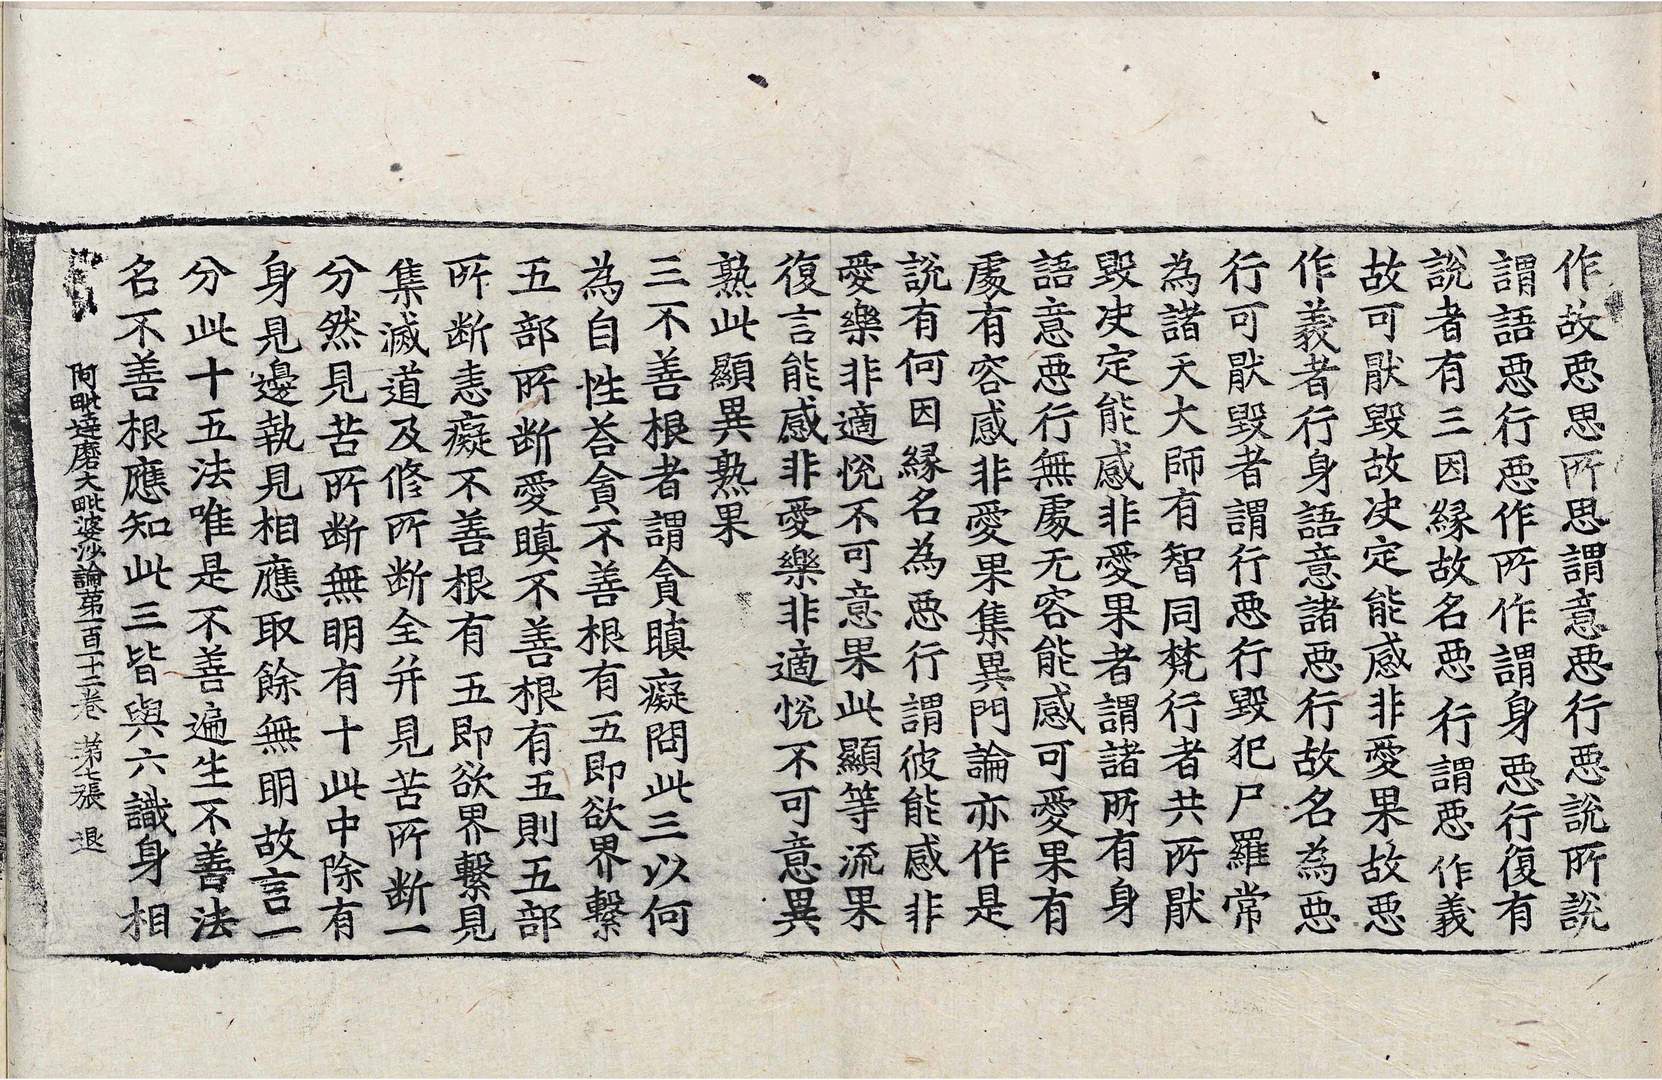 作故惡思所思謂意惡行惡說所說
謂語惡行惡作所作謂身惡行復有
說者有三因緣故名惡行謂惡作義
故可猒毀故决定能感非愛果故惡
作義者行身語意諸惡行故名為惡
行可猒毀者謂行惡行毀犯尸羅常
為諸天大師有智同梵行者共所猒
毀决定能感非愛果者謂諸所有身
語意惡行無處无容能感可愛果有
處有容感非愛果集異門論亦作是
說有何因緣名為惡行謂彼能感非
愛樂非適悅不可意果此顯等流果
復言能感非愛樂非適悅不可意異
熟此顯異熟果
三不善根者謂貪瞋癡問此三以何
為自性荅貪不善根有五即欲界繫
五部所断愛瞋不善根有五則五部
所断恚癡不善根有五即欲界繫見
集滅道及修所断全并見苦所断一
分然見苦所断無明有十此中除有
身見邊執見相應取餘無明故言一
分此十五法唯是不善遍生不善法
名不善根應知此三皆與六識身相
阿毗達磨大毗婆沙論第一百十二卷 第七張 退